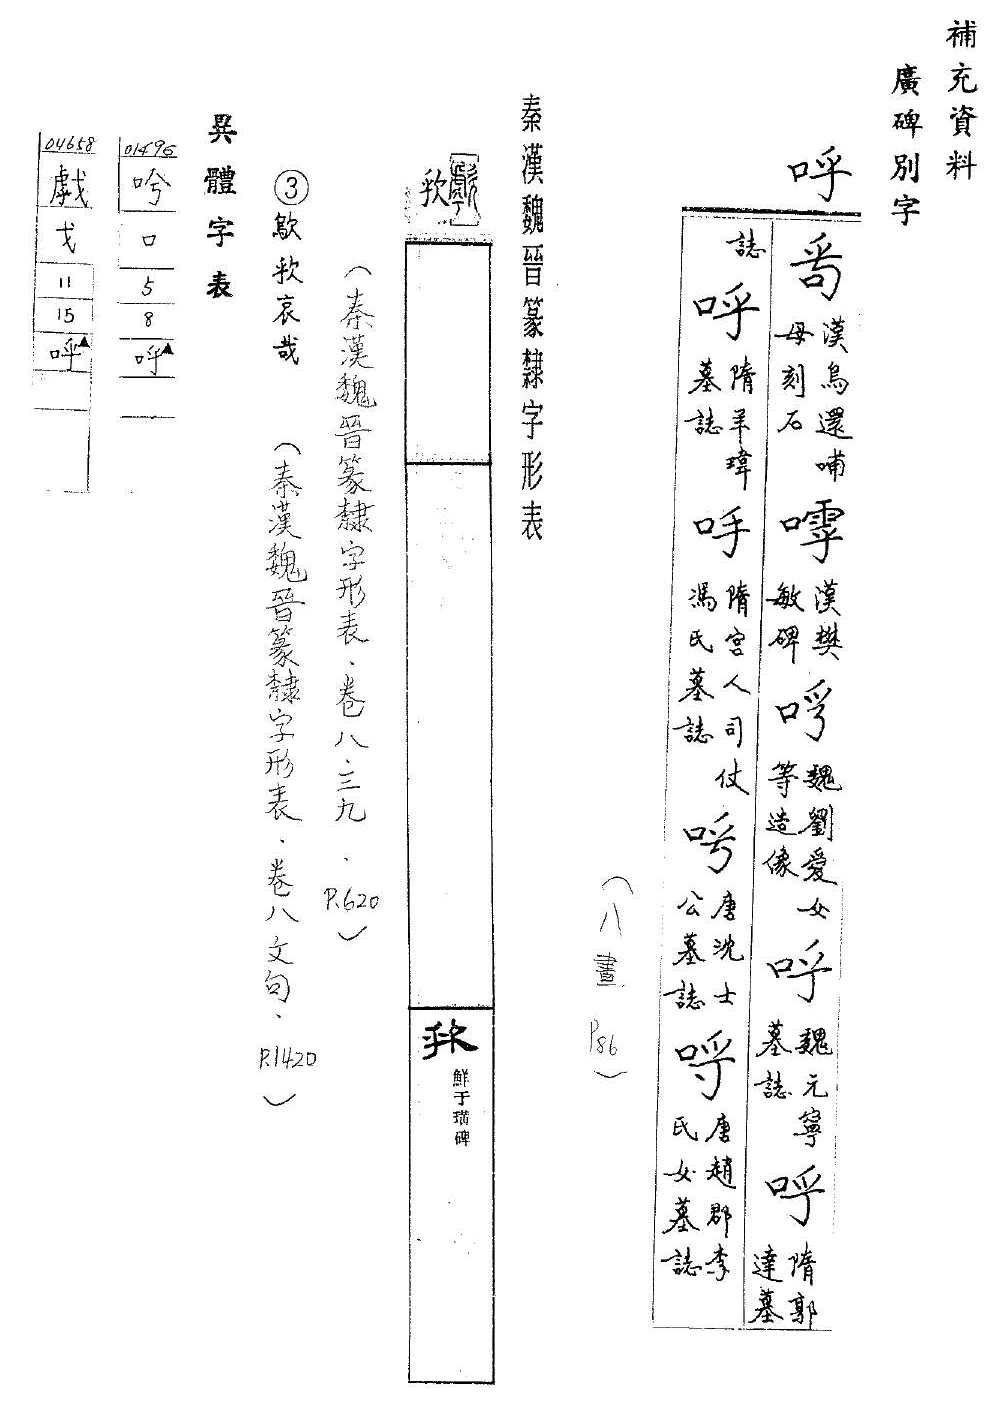 補充資料
廣碑別字
呼
漢烏還哺
母刻石
漢樊
敏碑
魏劉愛女
等造像
呼
魏元寧
墓誌
呼
隋郭
達墓
誌
呼
隋羊瑋
墓誌
隋宮人司仗
馮氏墓誌
唐沈士
公墓誌
唐趙郡李
氏女墓誌
（八畫 P86）
秦漢魏晉篆隸字形表
鮮于璜碑
（秦漢魏晉篆隸字形表．卷八．三九．P.620）
③歇㰤哀哉（秦漢魏晉篆隸字形表．卷八文句．P.1420）
異體字表
01496
吟
口
5
8
呼▲
04658
戲
戈
11
15
呼▲